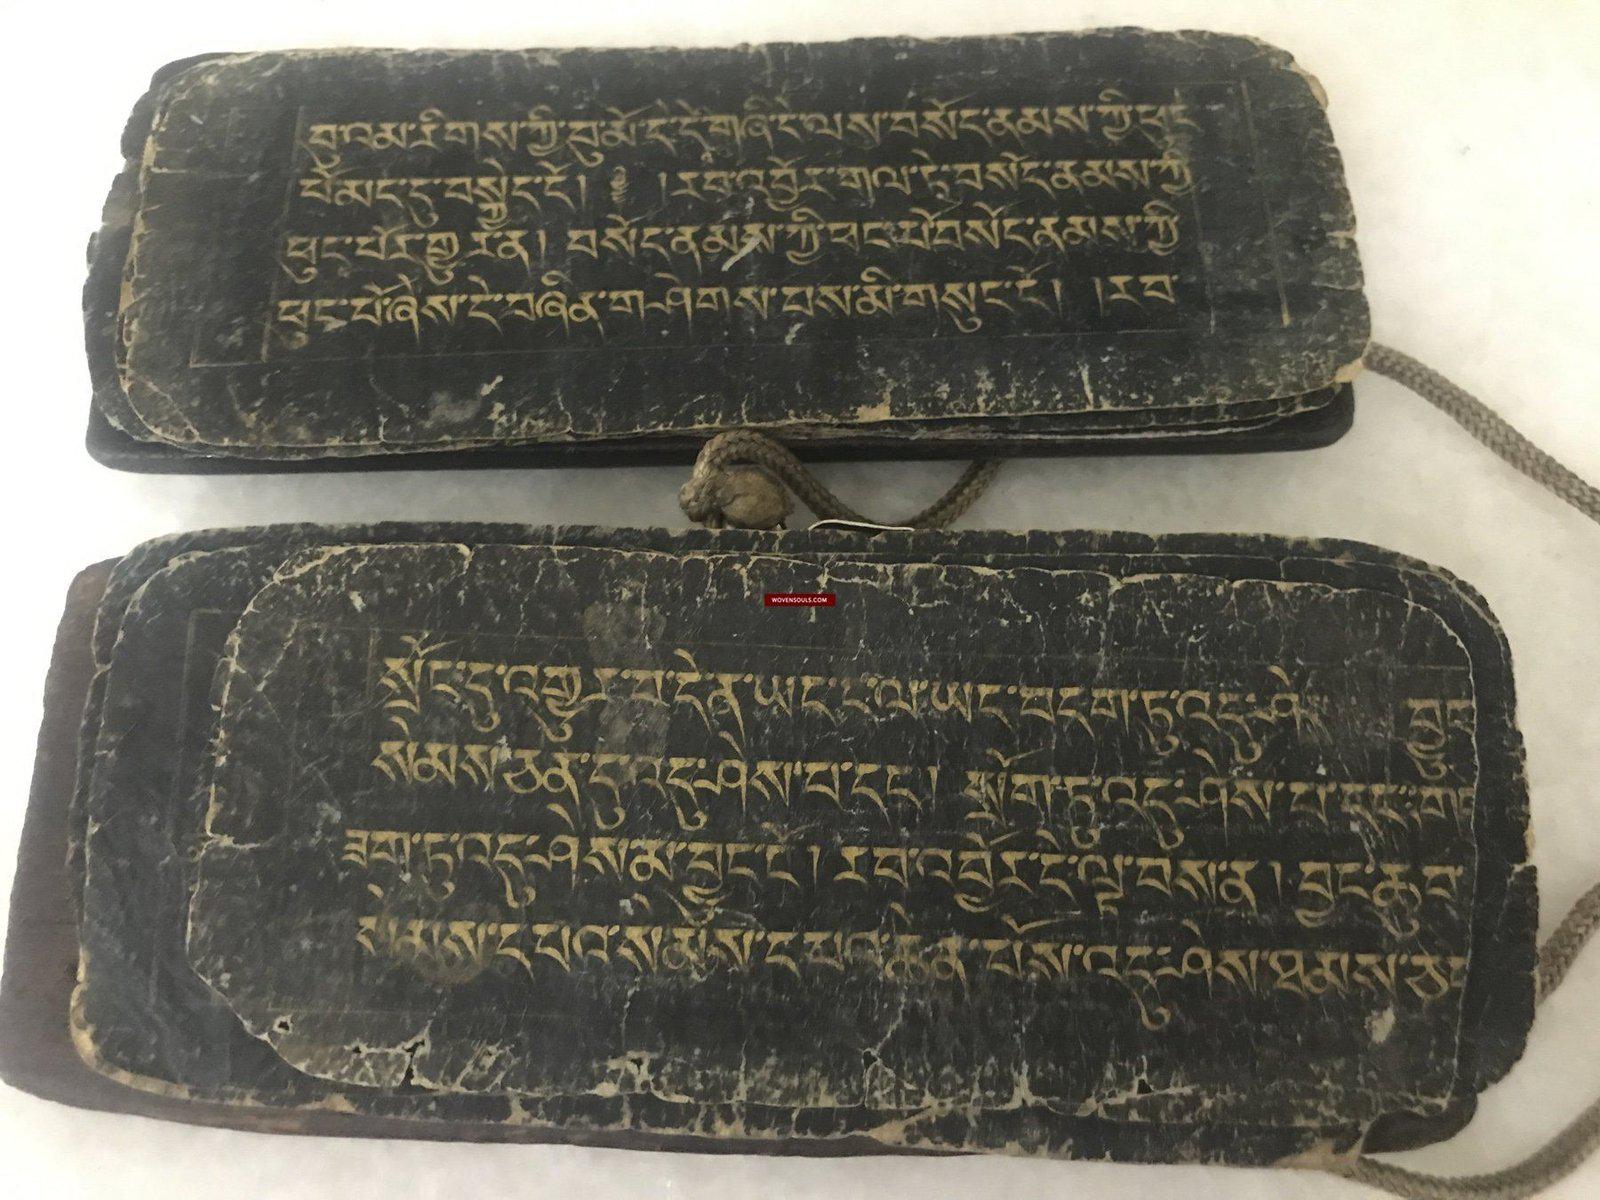 བུ་འམ་རིགས་ཀྱི་བུ་མོ་དེ་དེ་གཞི་དེ་ལས་བསོད་ནམས་ཀྱི་ཕུང་
པོ་མང་དུ་བསྐྱེད་དོ། །རབ་འབྱོར་གལ་ཏེ་བསོད་ནམས་ཀྱི
ཕུང་པོར་གྱུར་ན། བསོད་ནམས་ཀྱི་ཕུང་པོ་བསོད་ནམས་ཀྱི
ཕུང་པོ་ཞེས་དེ་བཞིན་གཤེགས་པས་མི་གསུང་ངོ། །རབ་
WOVENSOULS.COM
སྲོང་དུ་འགྱུར་བ་དེ་ན་ཡང་ ལ་ཡང་བདག་ཏུ་འདུ་ཤེས་ བྱུང
སེམས་ཅན་དུ་འདུ་ཤེས་པ་དང་། སྲོག་ཏུ་འདུ་ཤེས་པ་དང་གང
ཟག་ཏུ་འདུ་ཤེས་མ་བྱུང་ངོ། རབ་འབྱོར་ང་ལྟ་བས་ན། བྱང་ཆུབ
སེམས་དཔའ་སེམས་དཔའ་ཆེན་པོས་འདུ་ཤེས་ཐམས་ཅད